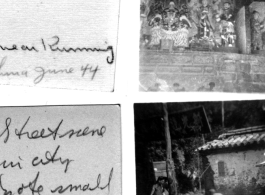 near Kunming
China June 44
Street scene
in city
note small